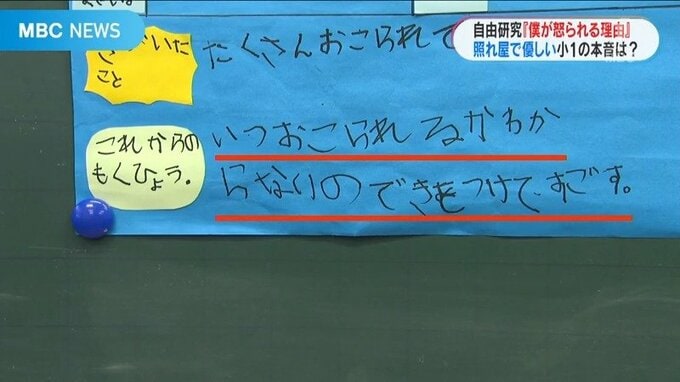 MBC NEWS
自由研究『僕が怒られる理由』
照れ屋で優しい小1の本音は?
いた
こと
たくさんおこられて
これからの
もくひょう。
いつおこられるかわか
らなりのできをつけて、すごす。